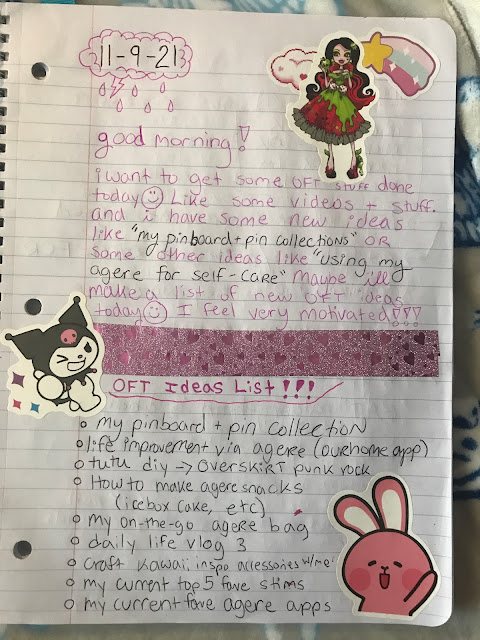 11-9-21
good morning!
i want to get some OFT stuff done
today Like some videos + stuff.
and i have some new ideas
like "my pinboard + pin collections" OR
some other ideas like "using my
agere for self-care" Maybe ill
make a list of new OFT ideas
today I feel very motivated!!!
OFT Ideas List!!!
my pinboard + pin collection
life improvement via agere (ourhome app)
tutu diy → overskirt punk rock
How to make agere snacks
(icebox cake, etc)
my on-the-go agere bag
daily life vlog 3
craft kawaii inspo accessories w/me
my current top 5 fave stims
my current fave agere apps